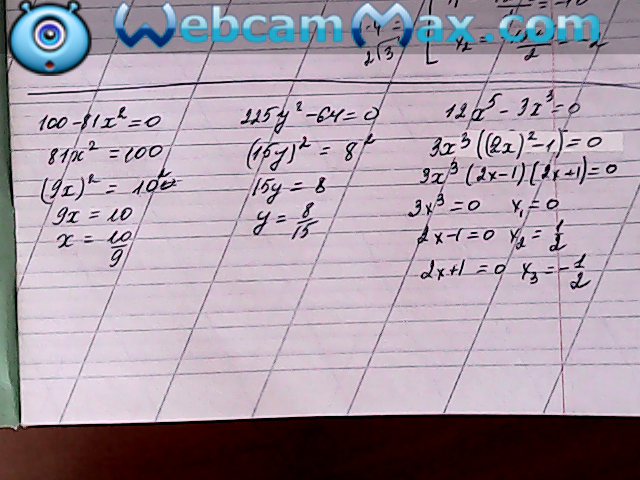 WebcamMax.com
100 - 81x² = 0
81x² = 100
(9x)² = 10²
9x = 10
x = 10/9
225y² - 64 = 0
(15y)² = 8²
15y = 8
y = 8/15
12x⁵ - 3x³ = 0
3x³((2x)² - 1) = 0
3x³(2x-1)(2x+1) = 0
3x³ = 0 x₁ = 0
2x-1 = 0 x₂ = 1/2
2x+1 = 0 x₃ = -1/2